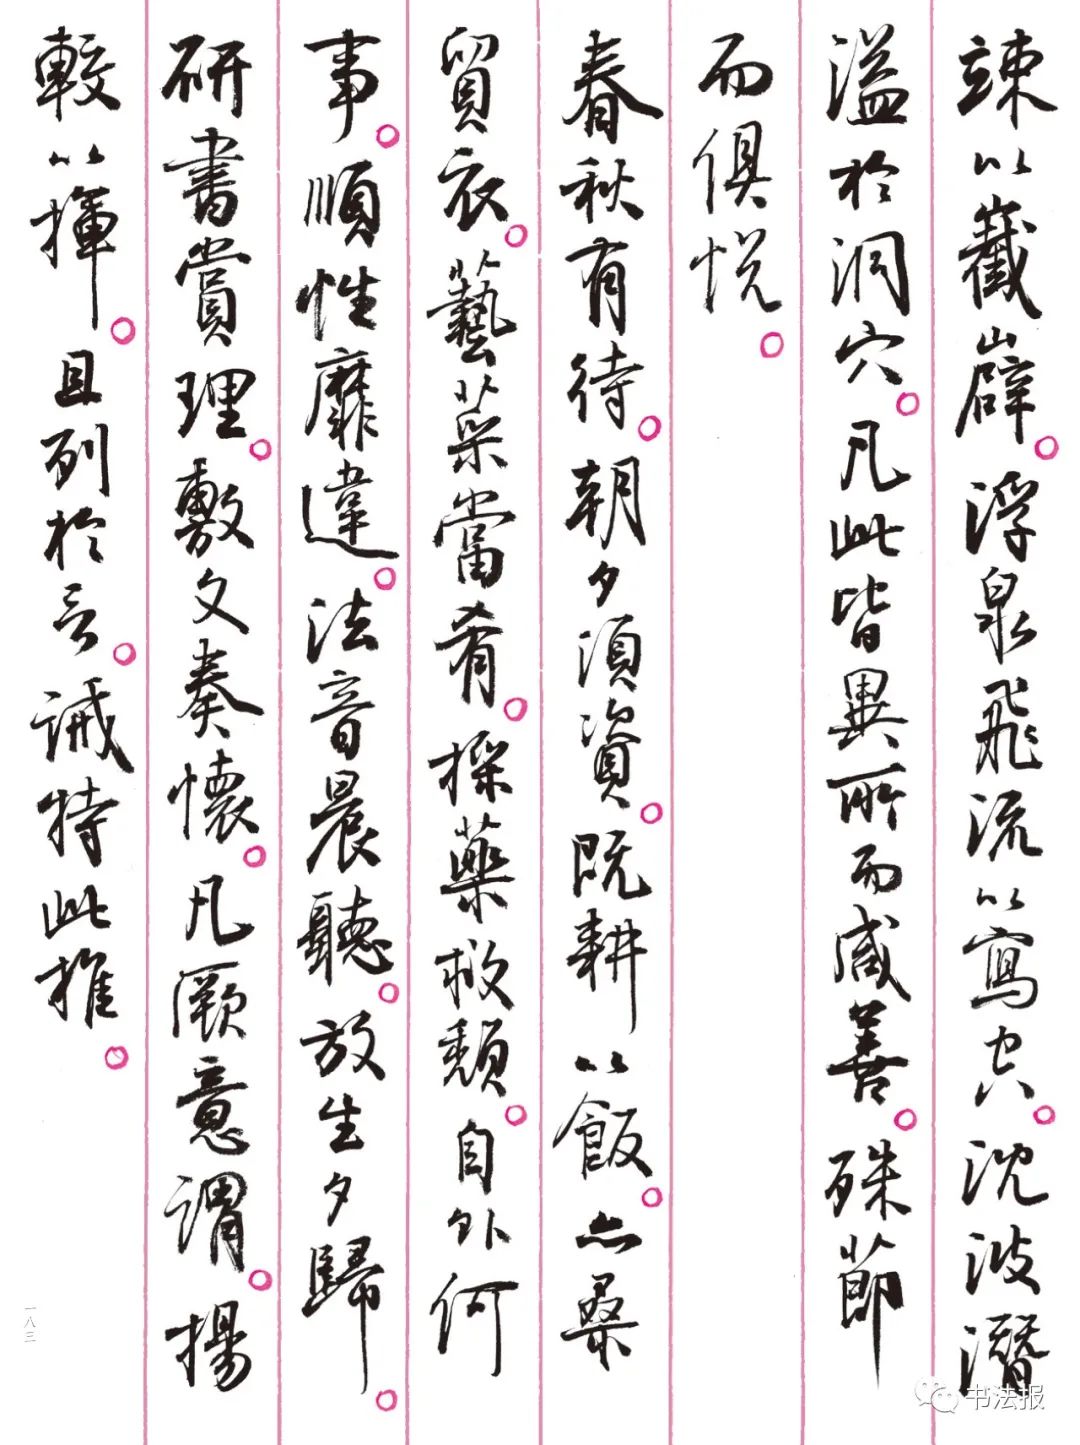 竦以嶻嶭。浮泉飛流以寫空。沈波潛
溢於洞穴。凡此皆異所而咸善。殊節
而俱悅。
春秋有待。朝夕須資。既耕以飯。亦桑
貿衣。藝菜當肴。採藥救頹。自外何
事。順性靡違。法音晨聽。放生夕歸。
研書賞理。敷文奏懷。凡厥意謂。揚
較以揮。且列於言。誡特此推。
一八三
书法报